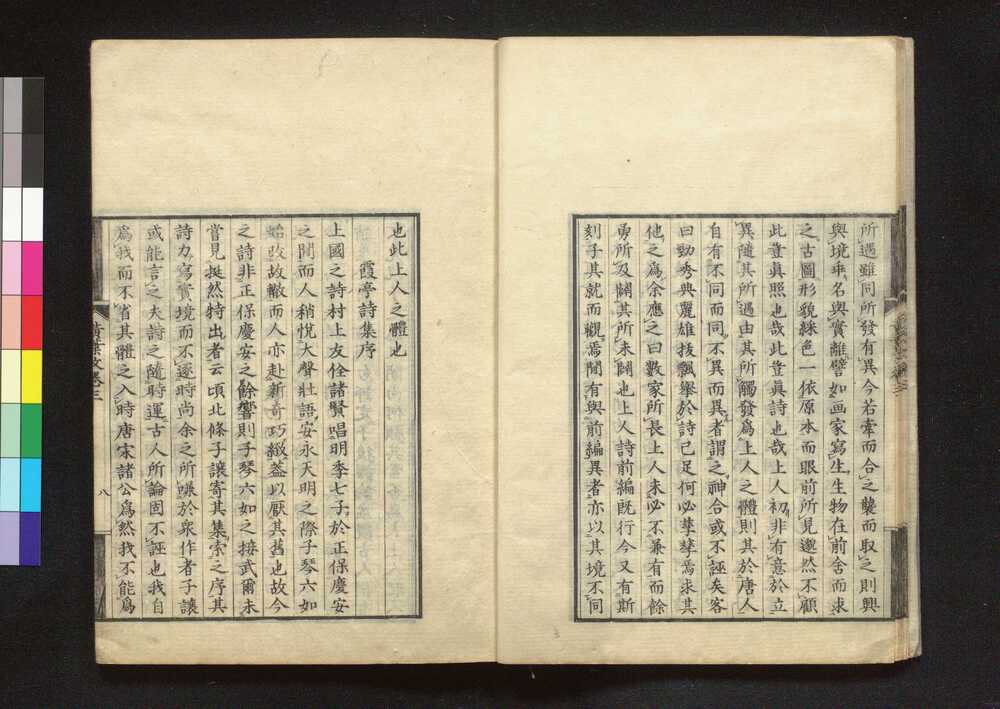 所遇雖同所發有異今若牽而合之襲而取之則興
與境乖名與實離譬如画家寫生生物在前舍而求
之古圖形貌綵色一依原本而眼前所見邈然不顧
此豈眞照也哉此豈眞詩也哉上人初非有意於立
異隨其所遇由其所觸發爲上人之體則其於唐人
自有不同而同不異而異者謂之神合或不誣矣客
曰勁秀典麗雄拔飄擧於詩已足何必孳孳焉求其
他之爲余應之曰數家所長上人未必不兼有而餘
勇所及闢其所未闢也上人詩前編既行今又有斯
刻子其就而觀焉聞有與前編異者亦以其境不同
也此上人之體也
霞亭詩集序
上國之詩村上友佺諸賢唱明李七子於正保慶安
之間而人稍悅大聲壯語安永天明之際子琴六如
始改故轍而人亦赴新奇巧緻蓋以厭其舊也故今
之詩非正保慶安之餘響則子琴六如之接武爾未
嘗見挺然特出者云頃北條子讓寄其集索之序其
詩力寫實境而不逐時尚余之所嗛於衆作者子讓
或能言之夫詩之隨時運古人所論固不誣也我自
爲我而不省其體之入時唐宋諸公爲然我不能爲
黃葉文卷三
八